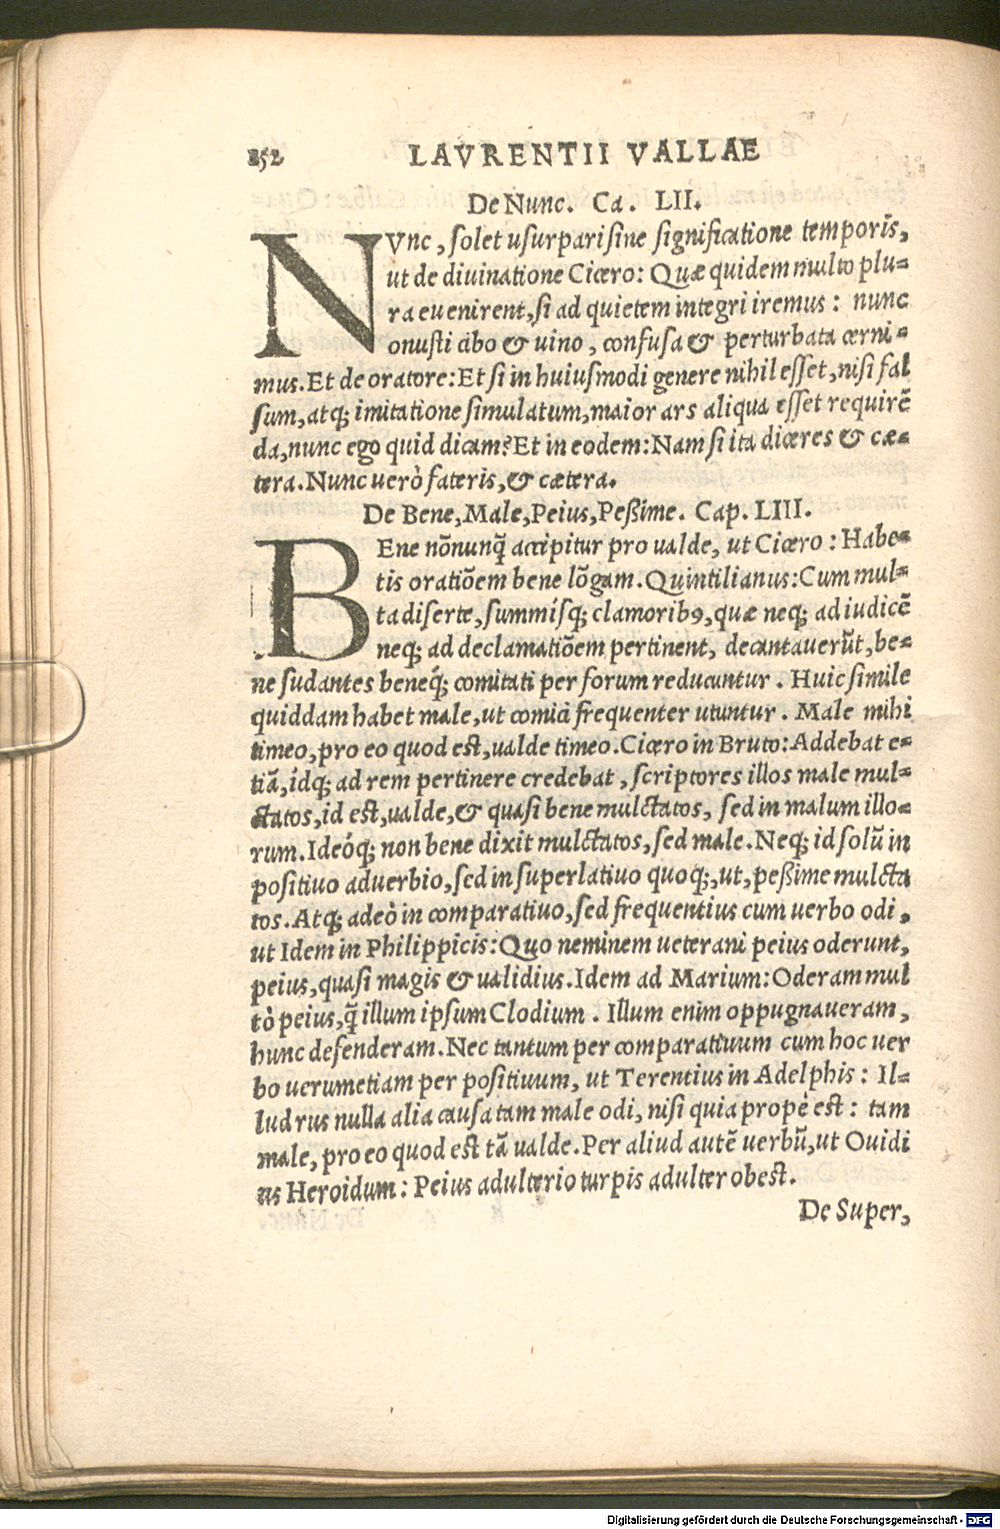 252 LAVRENTII VALLAE
De Nunc. Ca. LII.
NVnc, solet usurpari sine significatione temporis,
ut de diuinatione Cicero: Quæ quidem multo plu-
ra euenirent, si ad quietem integri iremus: nunc
onusti cibo & uino, confusa & perturbata cerni-
mus. Et de oratore: Et si in huiusmodi genere nihil esset, nisi fal
sum, atq; imitatione simulatum, maior ars aliqua esset requirē
da, nunc ego quid dicam? Et in eodem: Nam si ita diceres & cæ-
tera. Nunc uerò fateris, & cætera.
De Bene, Male, Peius, Peßime. Cap. LIII.
BEne nōnunq̄ accipitur pro ualde, ut Cicero: Habe-
tis oratiōem bene lōgam. Quintilianus: Cum mul-
ta diserte, summísq; clamorib9, quæ neq; ad iudicē
neq; ad declamatiōem pertinent, decantauerūt, be-
ne sudantes beneq́; comitati per forum reducuntur. Huic simile
quiddam habet male, ut comici frequenter utuntur. Male mihi
timeo, pro eo quod est, ualde timeo. Cicero in Bruto: Addebat e-
tiā, idq; ad rem pertinere credebat, scriptores illos male mul-
ctatos, id est, ualde, & quasi bene mulctatos, sed in malum illo-
rum. Ideóq; non bene dixit mulctatos, sed male. Neq; id solū in
positiuo aduerbio, sed in superlatiuo quoq;, ut, peßime mulcta
tos. Atq; adeò in comparatiuo, sed frequentius cum uerbo odi,
ut Idem in Philippicis: Quo neminem ueterani peius oderunt,
peius, quasi magis & ualidius. Idem ad Marium: Oderam mul
tò peius, q̄ illum ipsum Clodium. Illum enim oppugnaueram,
hunc defenderam. Nec tantum per comparatiuum cum hoc uer
bo uerumetiam per positiuum, ut Terentius in Adelphis: Il-
lud rus nulla alia causa tam male odi, nisi quia propè est: tam
male, pro eo quod est tā ualde. Per aliud autē uerbū, ut Ouidi
us Heroidum: Peius adulterio turpis adulter obest.
De Super,
Digitalisierung gefördert durch die Deutsche Forschungsgemeinschaft - DFG